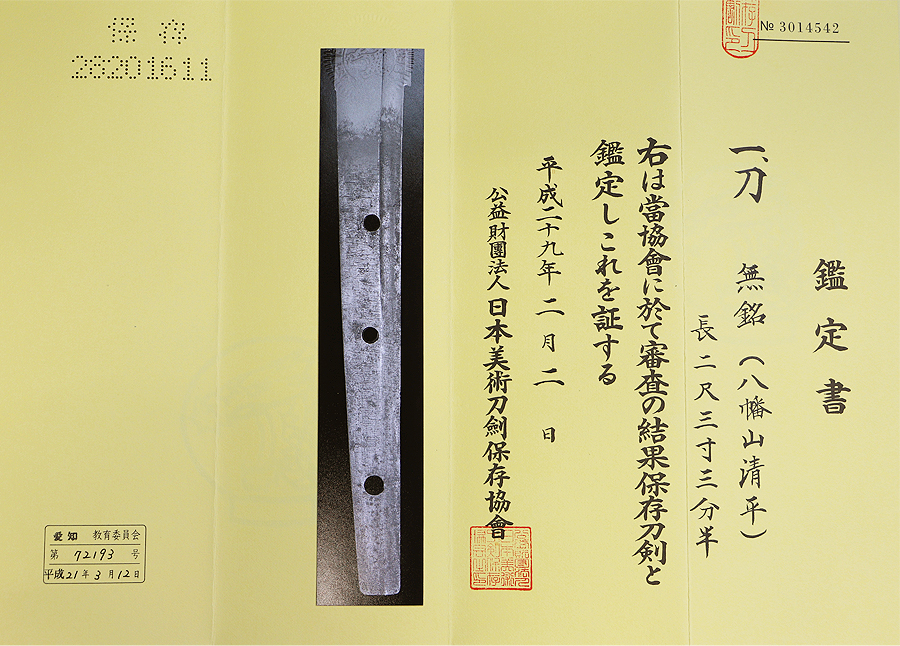 № 3014542
鑑定書
一、刀 無銘（八幡山清平）
長二尺三寸三分半
右は當協會に於て審査の結果保存刀剣と
鑑定しこれを証する
平成二十九年二月二日
公益財團法人日本美術刀劍保存協會
保存
28201611
愛知 教育委員会
第 72193 号
平成21年3月12日